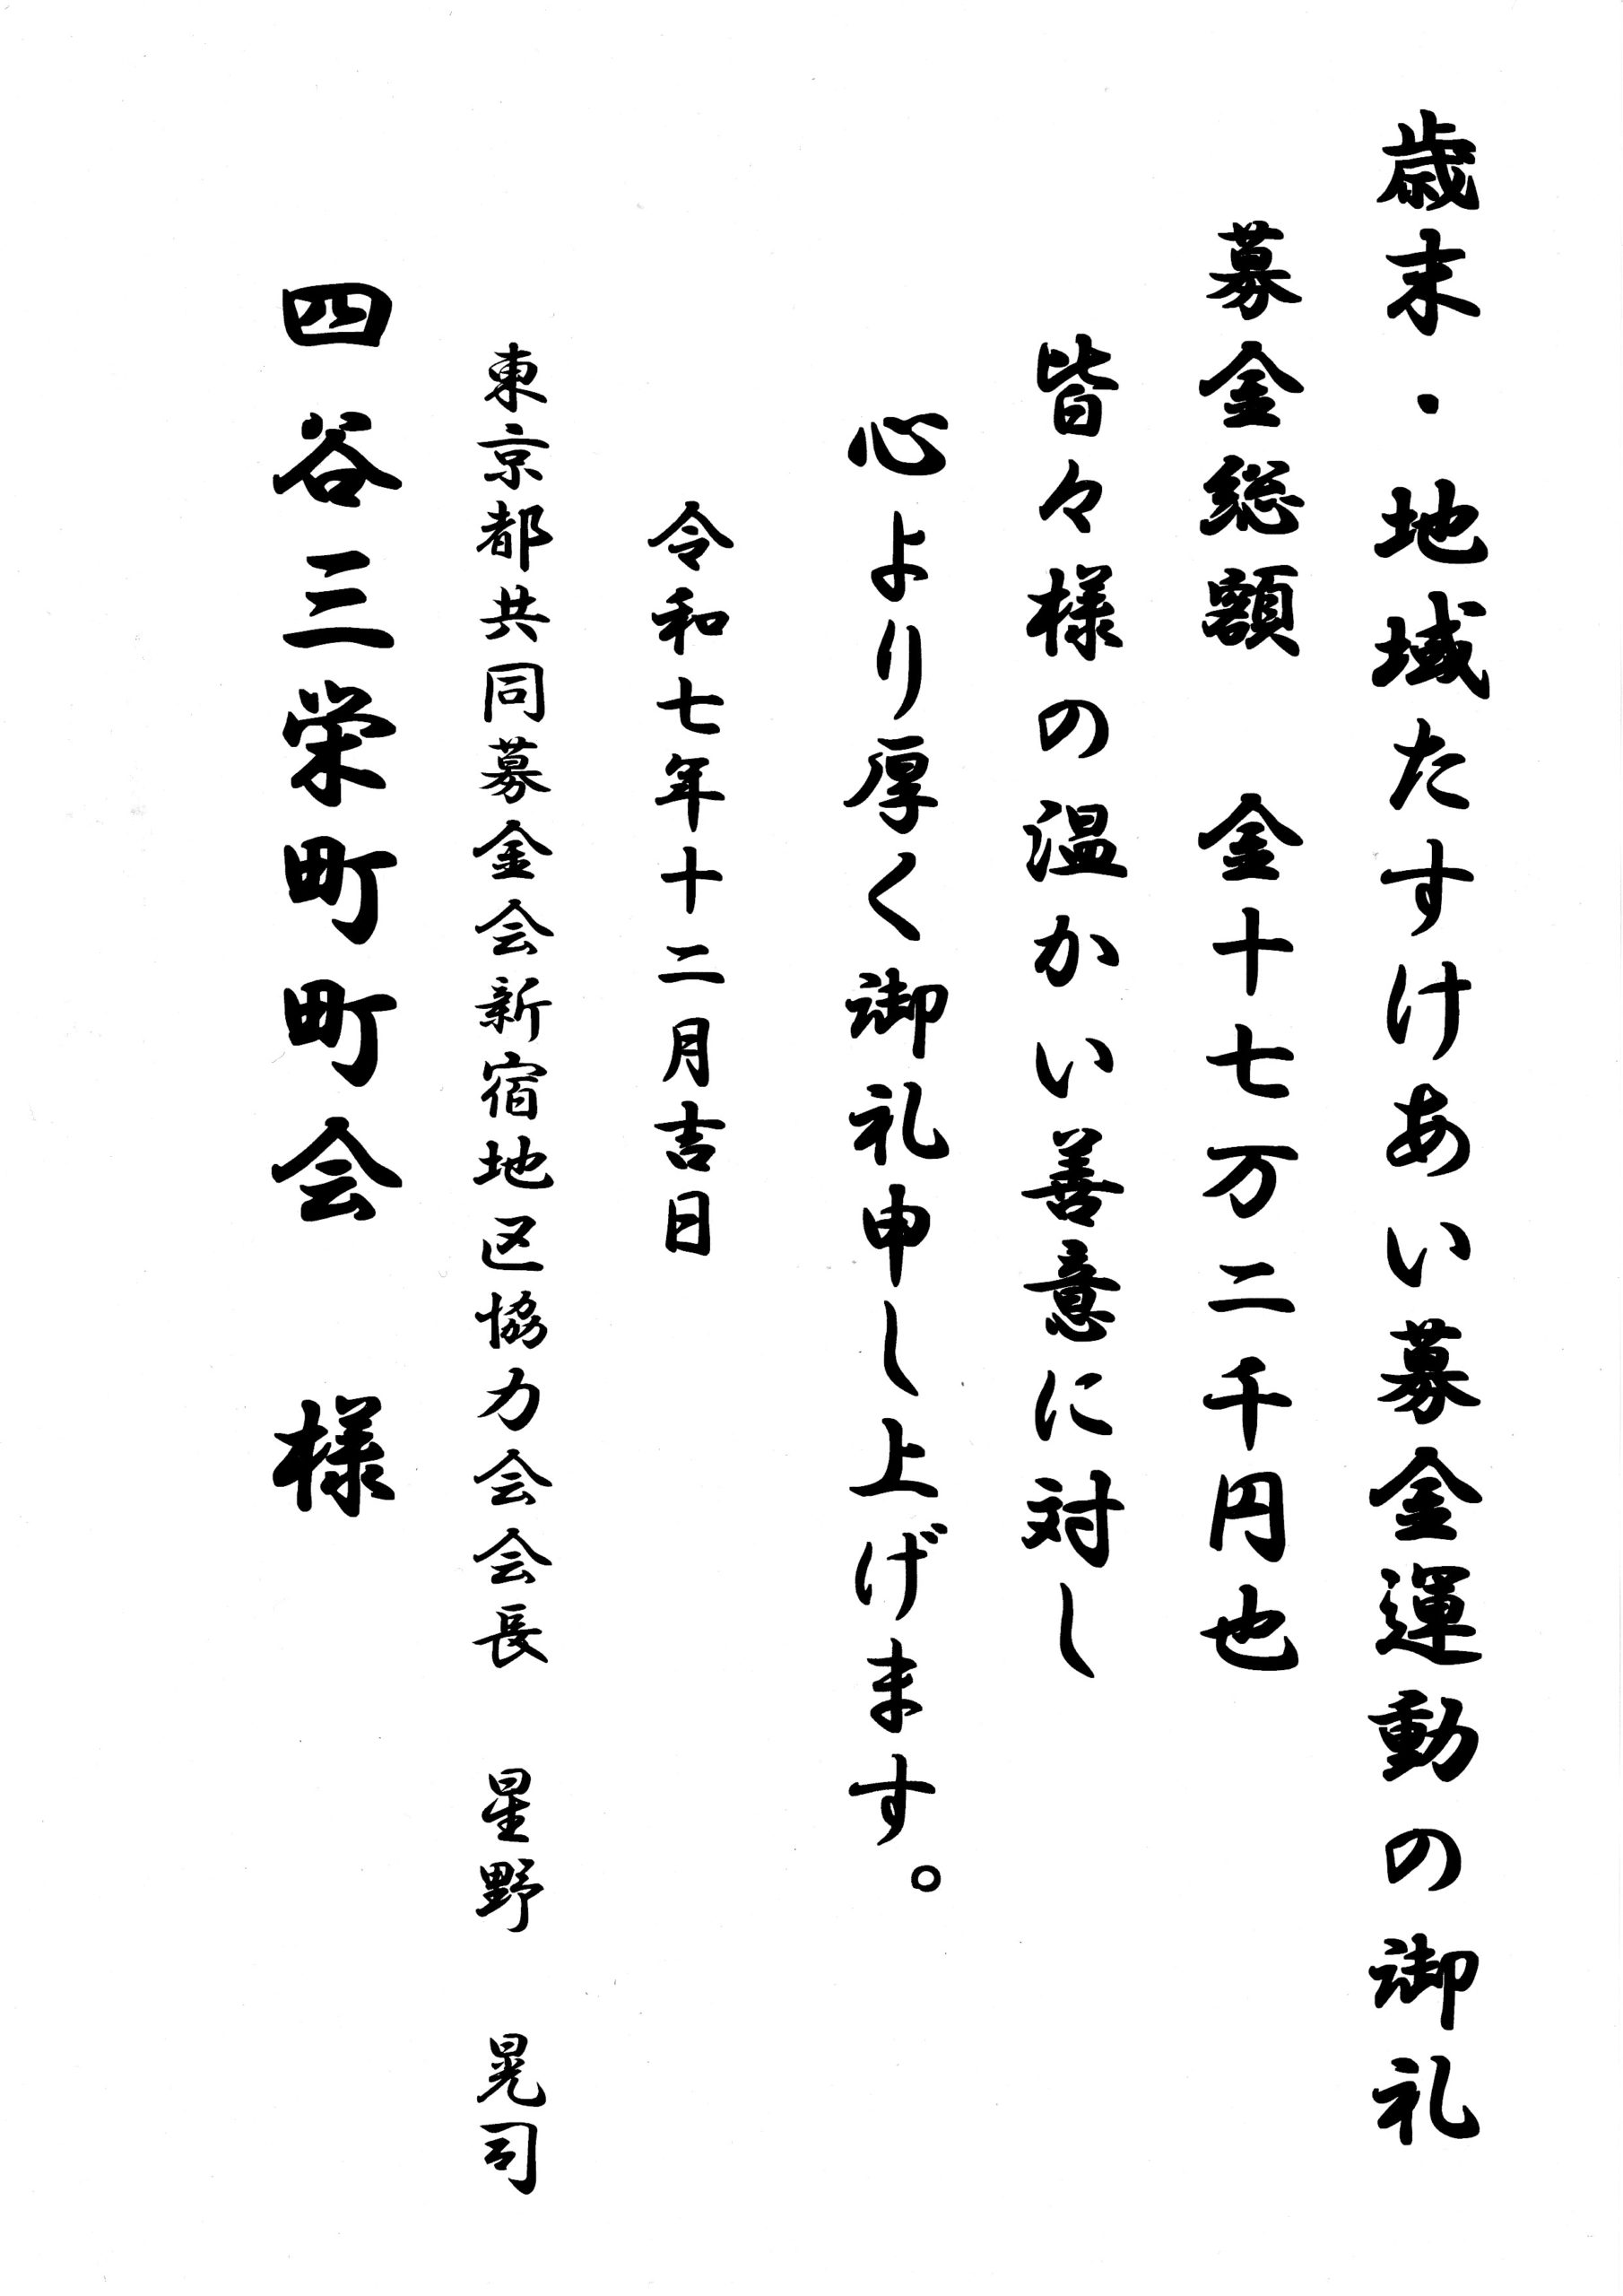 歳末・地域たすけあい募金運動の御礼
募金総額　金十七万二千円也
皆々様の温かい善意に対し
心より厚く御礼申し上げます。
令和七年十二月吉日
東京都共同募金会新宿地区協力会会長　星野　晃司
四谷三栄町町会　様